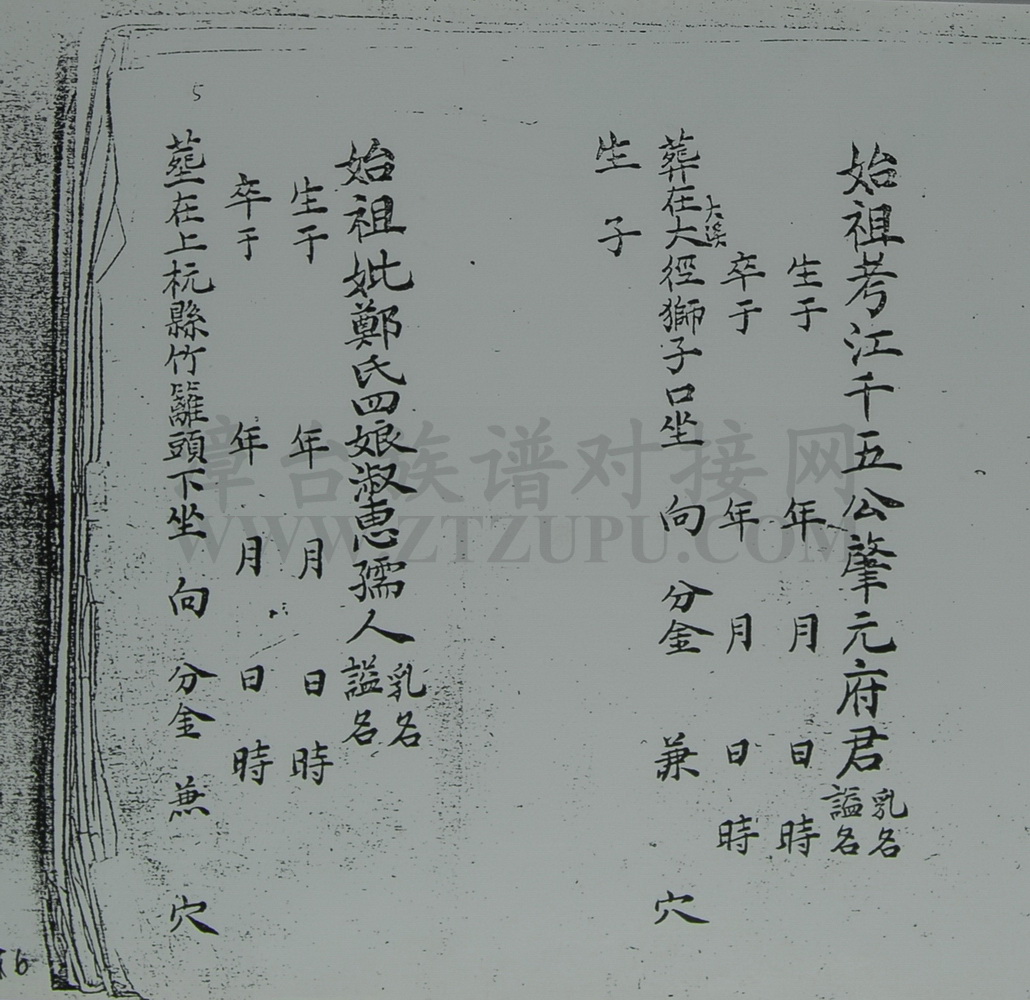 始祖考江千五公肇元府君 乳名 謚名
生于 年 月 日 時
卒于 年 月 日 時
葬在大徑獅子口坐 向 分金 兼 穴
大溪
生子
始祖妣鄭氏四娘淑惠孺人 乳名 謚名
生于 年 月 日 時
卒于 年 月 日 時
塟在上杭縣竹籬頭下坐 向 分金 兼 穴
5
6
章台族谱对接网
WWW.ZTZUPU.COM